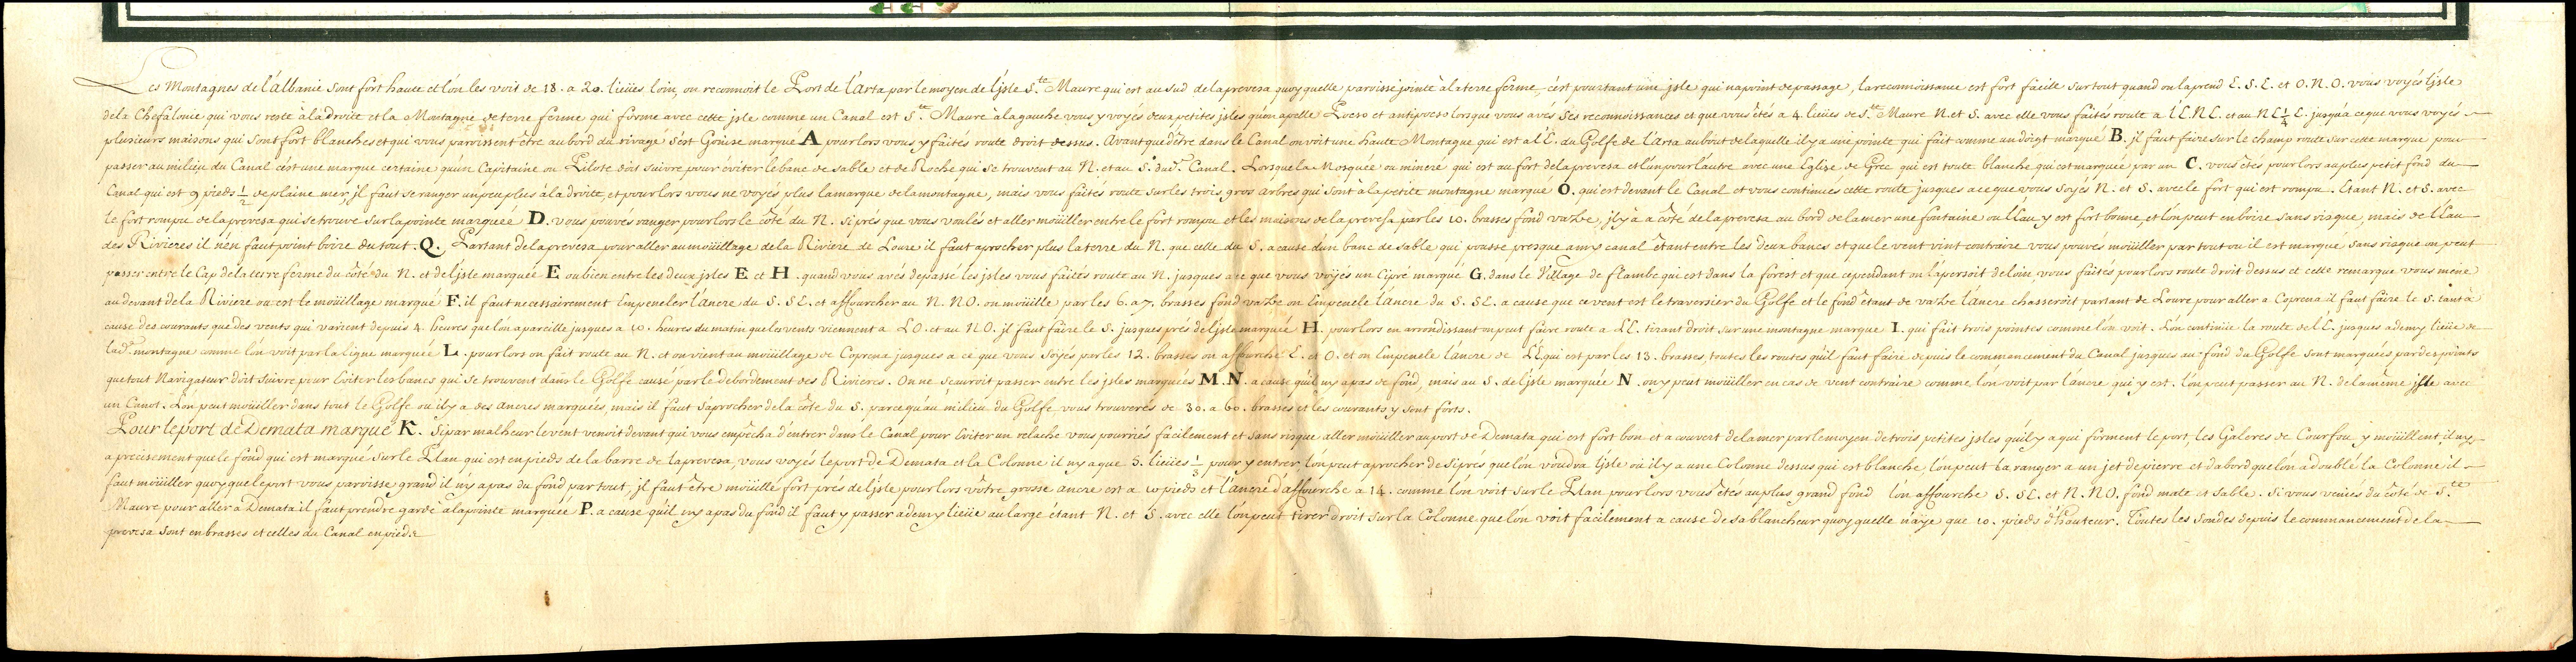 Les Montagnes de l'albanie sont fort haute et l'on les voit de 18. a 20. lieües loin, on reconnoit le Port de l'arta par le moyen de l'jsle S.te Maure qui est au sud de la prevesa quoy quelle paroisse jointe à la terre ferme, c'est pourtant une jsle qui na point de passage, la reconnoissance est fort facille sur tout quand on la prend E. S. E. et O. N. O. vous voyés l'jsle
de la Chefalonie qui vous reste à la droite et la Montagne de terre ferme qui forme avec cette jsle comme un Canal est S.te Maure a la gauche vous y voyés deux petites jsles qu'on apelle Pocso et antipocso lorsque vous avés ses reconnoissances et que vous êtés a 4. lieües de S.te Maure N. et S. avec elle vous faités route a l'E. N. E. et au N E 1/4 E. jusqu'a ce que vous voyés
plusieurs maisons qui sont fort blanches et qui vous paroissent être au bord du rivage s'est Genise marqué A pour lors vous y faités route droit dessus. Avant que d'être dans le Canal on voit une haute Montagne qui est a l'E. du Golfe de l'arta au bout de laquelle il y a une pointe qui fait comme un doigt marqué B. il faut faire sur le champ route sur cette marque pour
passer au milieu du Canal c'est une marque certaine qu'un Capitaine ou Pilote doit suivre pour éviter le banc de sable et de Roche qui se trouvent au N. et au S. dud. Canal. Lorsque la Mosquée ou mineré qui est au fort de la prevesa et l'un pour l'autre avec une Eglise de Grec qui est toute blanche qui est marquée par un C. vous êtés pour lors au plus petit fond du
Canal qui est 9 pieds 1/2 de plaine mer, jl faut se ranger un peu plus à la droite, et pour lors vous ne voyés plus la marque de la montagne, mais vous faités route sur les trois gros arbres qui sont à la petite montagne marqué O. qui est devant le Canal et vous continués cette route jusques a ce que vous soyés N. et S. avec le fort qui est rompu. Etant N. et S. avec
le fort rompu de la prevesa qui se trouve sur la pointe marquée D. vous pouvés ranger pour lors le côté du N. si prés que vous voulés et aller moüiller entre le fort rompu et les maisons de la prevesa par les 10. brasses fond vaze, jl y a a côté de la prevesa au bord de la mer une fontaine ou l'eau y est fort bonne, et l'on peut en boire sans risque, mais de l'eau
des Rivieres il n'en faut point boire du tout. Q. Partant de la prevesa pour aller au moüillage de la Riviere de Loure il faut aprocher plus la terre du N. que celle du S. a cause d'un banc de sable qui pousse presque a my canal étant entre les deux bancs et que le vent vint contraire vous pouvés moüiller par tout ou il est marqué sans risque on peut
passer entre le Cap de la terre ferme du côté du N. et de l'jsle marquée E ou bien entre les deux jsles E et H. quand vous avés depassé les jsles vous faités route au N. jusques a ce que vous voyés un Cipré marqué G. dans le Village de flambe qui est dans la forest et que cependant on l'apersoit de loin, vous faités pour lors route droit dessus et cette remarque vous mene
au devant de la Riviere ou est le moüillage marqué F. il faut necessairement Empeneler l'ancre du S. SE. et affourcher au N. NO. on moüille par les 6. a 7. brasses fond vaze on Empenele l'ancre du S. SE. a cause que ce vent est le traversier du Golfe et le fond étant de vaze l'ancre chasseroit partant de Loure pour aller a Coprena il faut faire le S. tant à
cause des courants que des vents qui varient depuis 4. heures que l'on apareille jusques a 10. heures du matin que les vents viennent a LO. et au NO. jl faut faire le S. jusques prés de l'jsle marquée H. pour lors en arrondissant on peut faire route a L'E. tirant droit sur une montagne marqué I. qui fait trois pointes comme l'on voit. L'on continüe la route de l'E. jusques a demy lieüe de
lad. montagne comme l'on voit par la ligne marquée L. pour lors on fait route au N. et on vient au moüillage de Coprena jusques a ce que vous soyés par les 12. brasses on affourche E. et O. et on Empenele l'ancre de L'E qui est par les 13. brasses, toutes les routes qu'il faut faire depuis le commencement du Canal jusques au fond du Golfe sont marquées par des points
que tout Navigateur doit suivre pour Eviter les bancs qui se trouvent dans le Golfe causé par le debordement des Rivieres. On ne sçauroit passer entre les jsles marquées M. N. a cause qu'il ny a pas de fond, mais au S. de l'jsle marquée N. on y peut moüiller en cas de vent contraire comme l'on voit par l'ancre qui y est. l'on peut passer au N. de la même jsle avec
un Canot. L'on peut moüiller dans tout le Golfe ou il y a des ancres marquées, mais il faut s'aprocher de la côte du S. parce qu'au milieu du Golfe vous trouverés de 30. a 60. brasses et les courants y sont forts.
Pour le port de Demata marqué K. Si par malheur le vent venoit devant qui vous empêcha d'entrer dans le Canal pour Eviter un relache vous pourriés facilement et sans risque aller moüiller au port de Demata qui est fort bon et a couvert de la mer par le moyen de trois petites jsles qu'il y a qui forment le port, les Galeres de Courfou y moüillent il ny
a precisement que le fond qui est marqué sur le Plan qui est en pieds de la barre de la prevesa, vous voyés le port de Demata et la Colonne il ny a que 3. lieües 1/3 pour y entrer, l'on peut aprocher de si prés que l'on voudra l'jsle ou il y a une Colonne dessus qui est blanche, l'on peut la ranger a un jet de pierre et d'abord que l'on a doublé la Colonne il
faut moüiller quoy que le port vous paroisse grand il n'y a pas du fond par tout, jl faut être moüillé fort prés de l'jsle pour lors vôtre grosse ancre est a 10 pieds et l'ancre d'affourche a 14. comme l'on voit sur le Plan pour lors vous êtés au plus grand fond l'on affourche S. SE. et N. NO. fond mate et sable. Si vous venés du côté de S.te
Maure pour aller a Demata il faut prendre garde a la pointe marquée P. a cause qu'il ny a pas du fond il faut y passer a demy lieüe au large étant N. et S. avec elle l'on peut tirer droit sur la Colonne que l'on voit facilement a cause de sa blancheur quoy quelle n'aye que 10. pieds d'hauteur. Toutes les sondes depuis le commancement de la
prevesa sont en brasses et celles du Canal en pieds